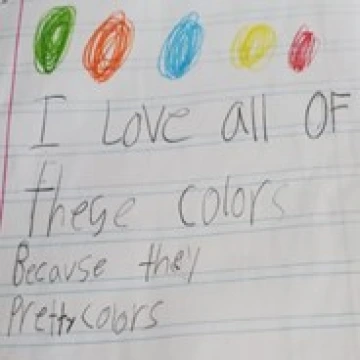 I Love all OF
these colors
Because they
Prettycolors